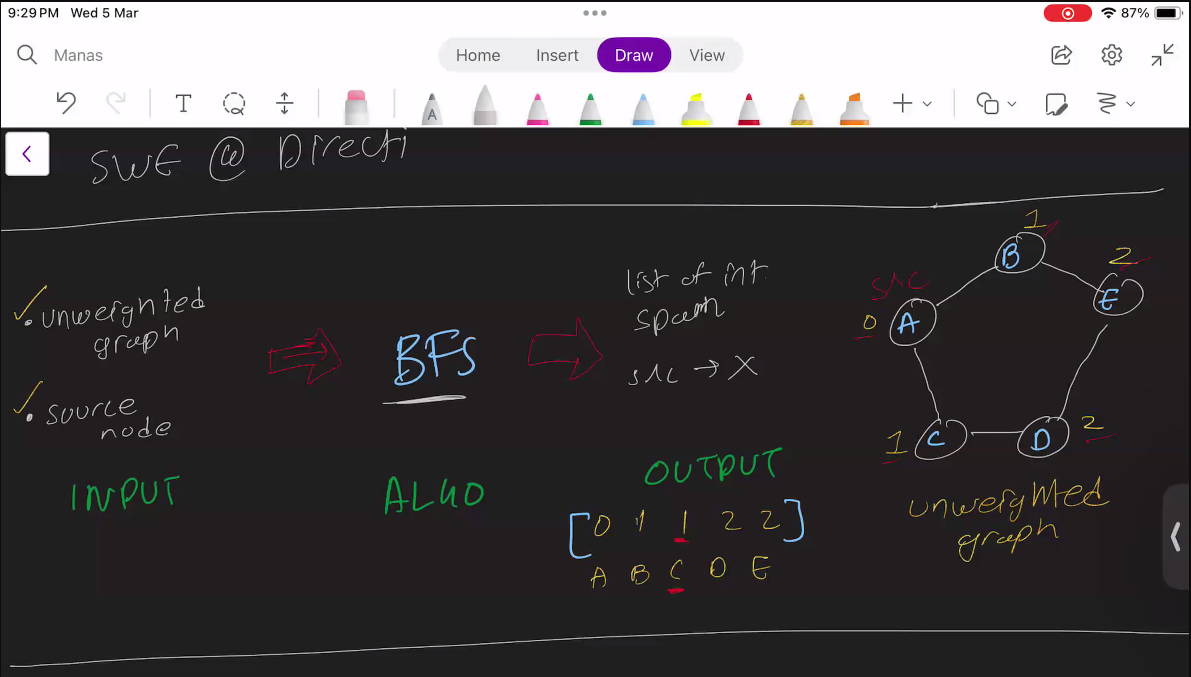 9:29 PM Wed 5 Mar
87%
Manas
Home Insert Draw View
T
A
SWE @ Directi
unweighted
graph
source
node
INPUT
BFS
ALGO
list of int
src → X
OUTPUT
[0 1 1 2 2]
A B C D E
src
0 A
1
B
2
E
1 C
D 2
unweighted
graph